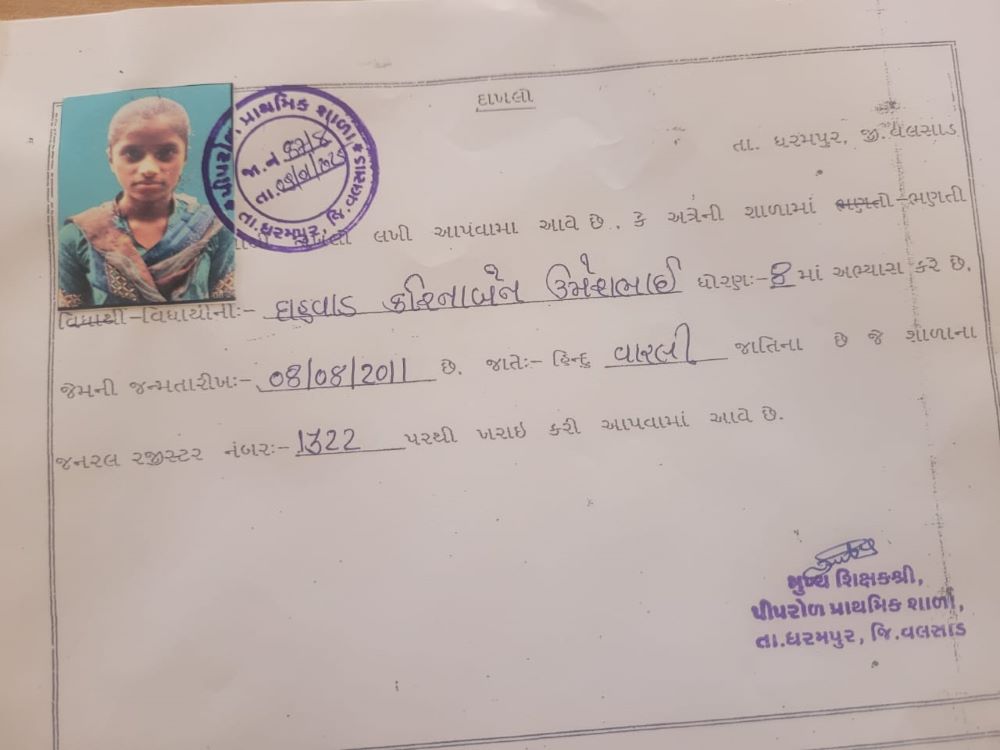 દાખલો
તા. ધરમપુર, જી. વલસાડ
પીપરોળ પ્રાથમિક શાળા
જા.નં
તા.
તા.ધરમપુર, જિ.વલસાડ
લખી આપવામા આવે છે. કે અત્રેની શાળામાં ભણતો-ભણતી
વિધાથી-વિધાયીની:- ઘાટવાડ કરિનાબેન ઉમેશભાઈ ધોરણ:-૮ માં અભ્યાસ કરે છે.
જેમની જન્મતારીખ:- 08/08/2011 છે. જાતે:- હિન્દુ વારલી જાતિના છે જે શાળાના
જનરલ રજીસ્ટર નંબર:- 1322 પરથી ખરાઇ કરી આપવામાં આવે છે.
મુખ્ય શિક્ષકશ્રી,
પીપરોળ પ્રાથમિક શાળા,
તા.ધરમપુર, જિ.વલસાડ